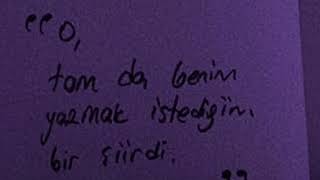 "O,
tam da benim
yazmak istediğim
bir şiirdi.
"